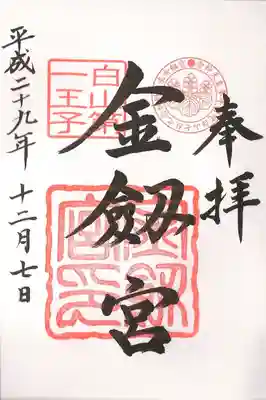 奉拝
金劔宮
平成二十九年 十二月七日
白山第
一王子
金劔
宮印